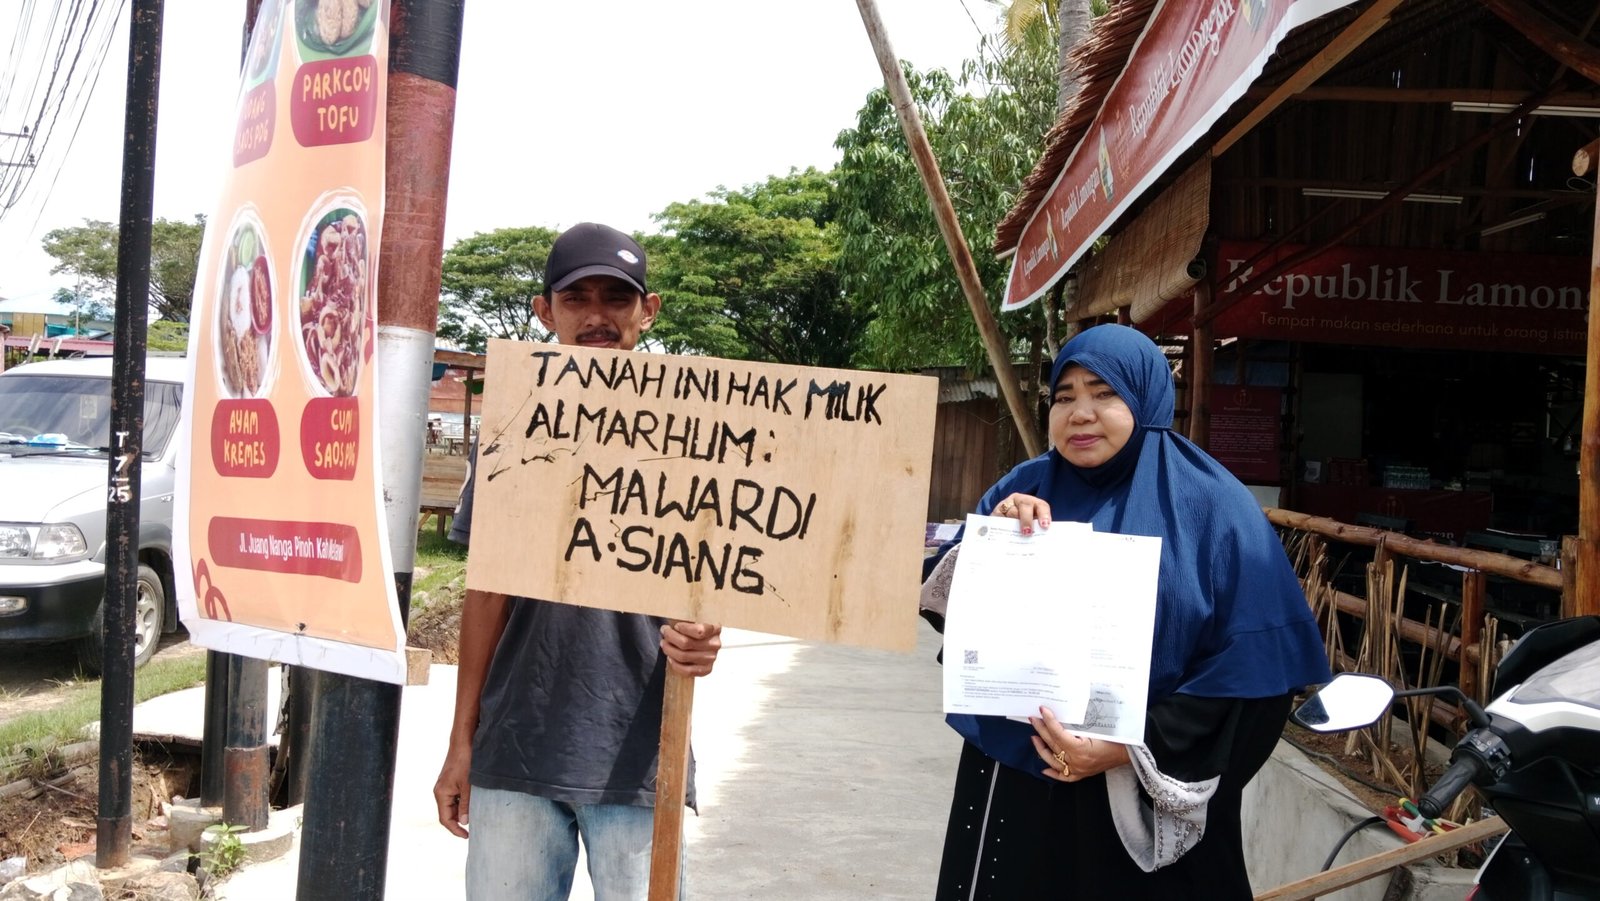 PARKCOY
TOFU
SAOS PDG
AYAM
KREMES
CUMI
SAOS PDG
Jl. Juang Nanga Pinoh Kab Melawi
T
7
25
TANAH INI HAK MILIK
ALMARHUM :
MAWARDI
A. SIANG
Republik Lamongan
Republik Lamongan
Republik Lamongan
Republik Lamong
Tempat makan sederhana untuk orang istim